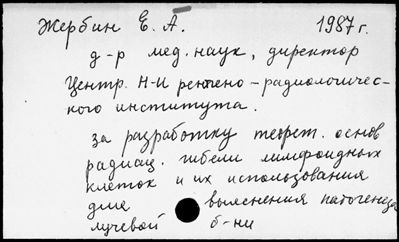 Жербин Е. А. 1987 г.
д-р мед. наук, директор
Центр. Н-И рентгено-радиологичес-
кого института.
за разработку теорет. основ
радиац. гибели лимфоидных
клеток и их использования
для выяснения патогенеза
лучевой б-ни